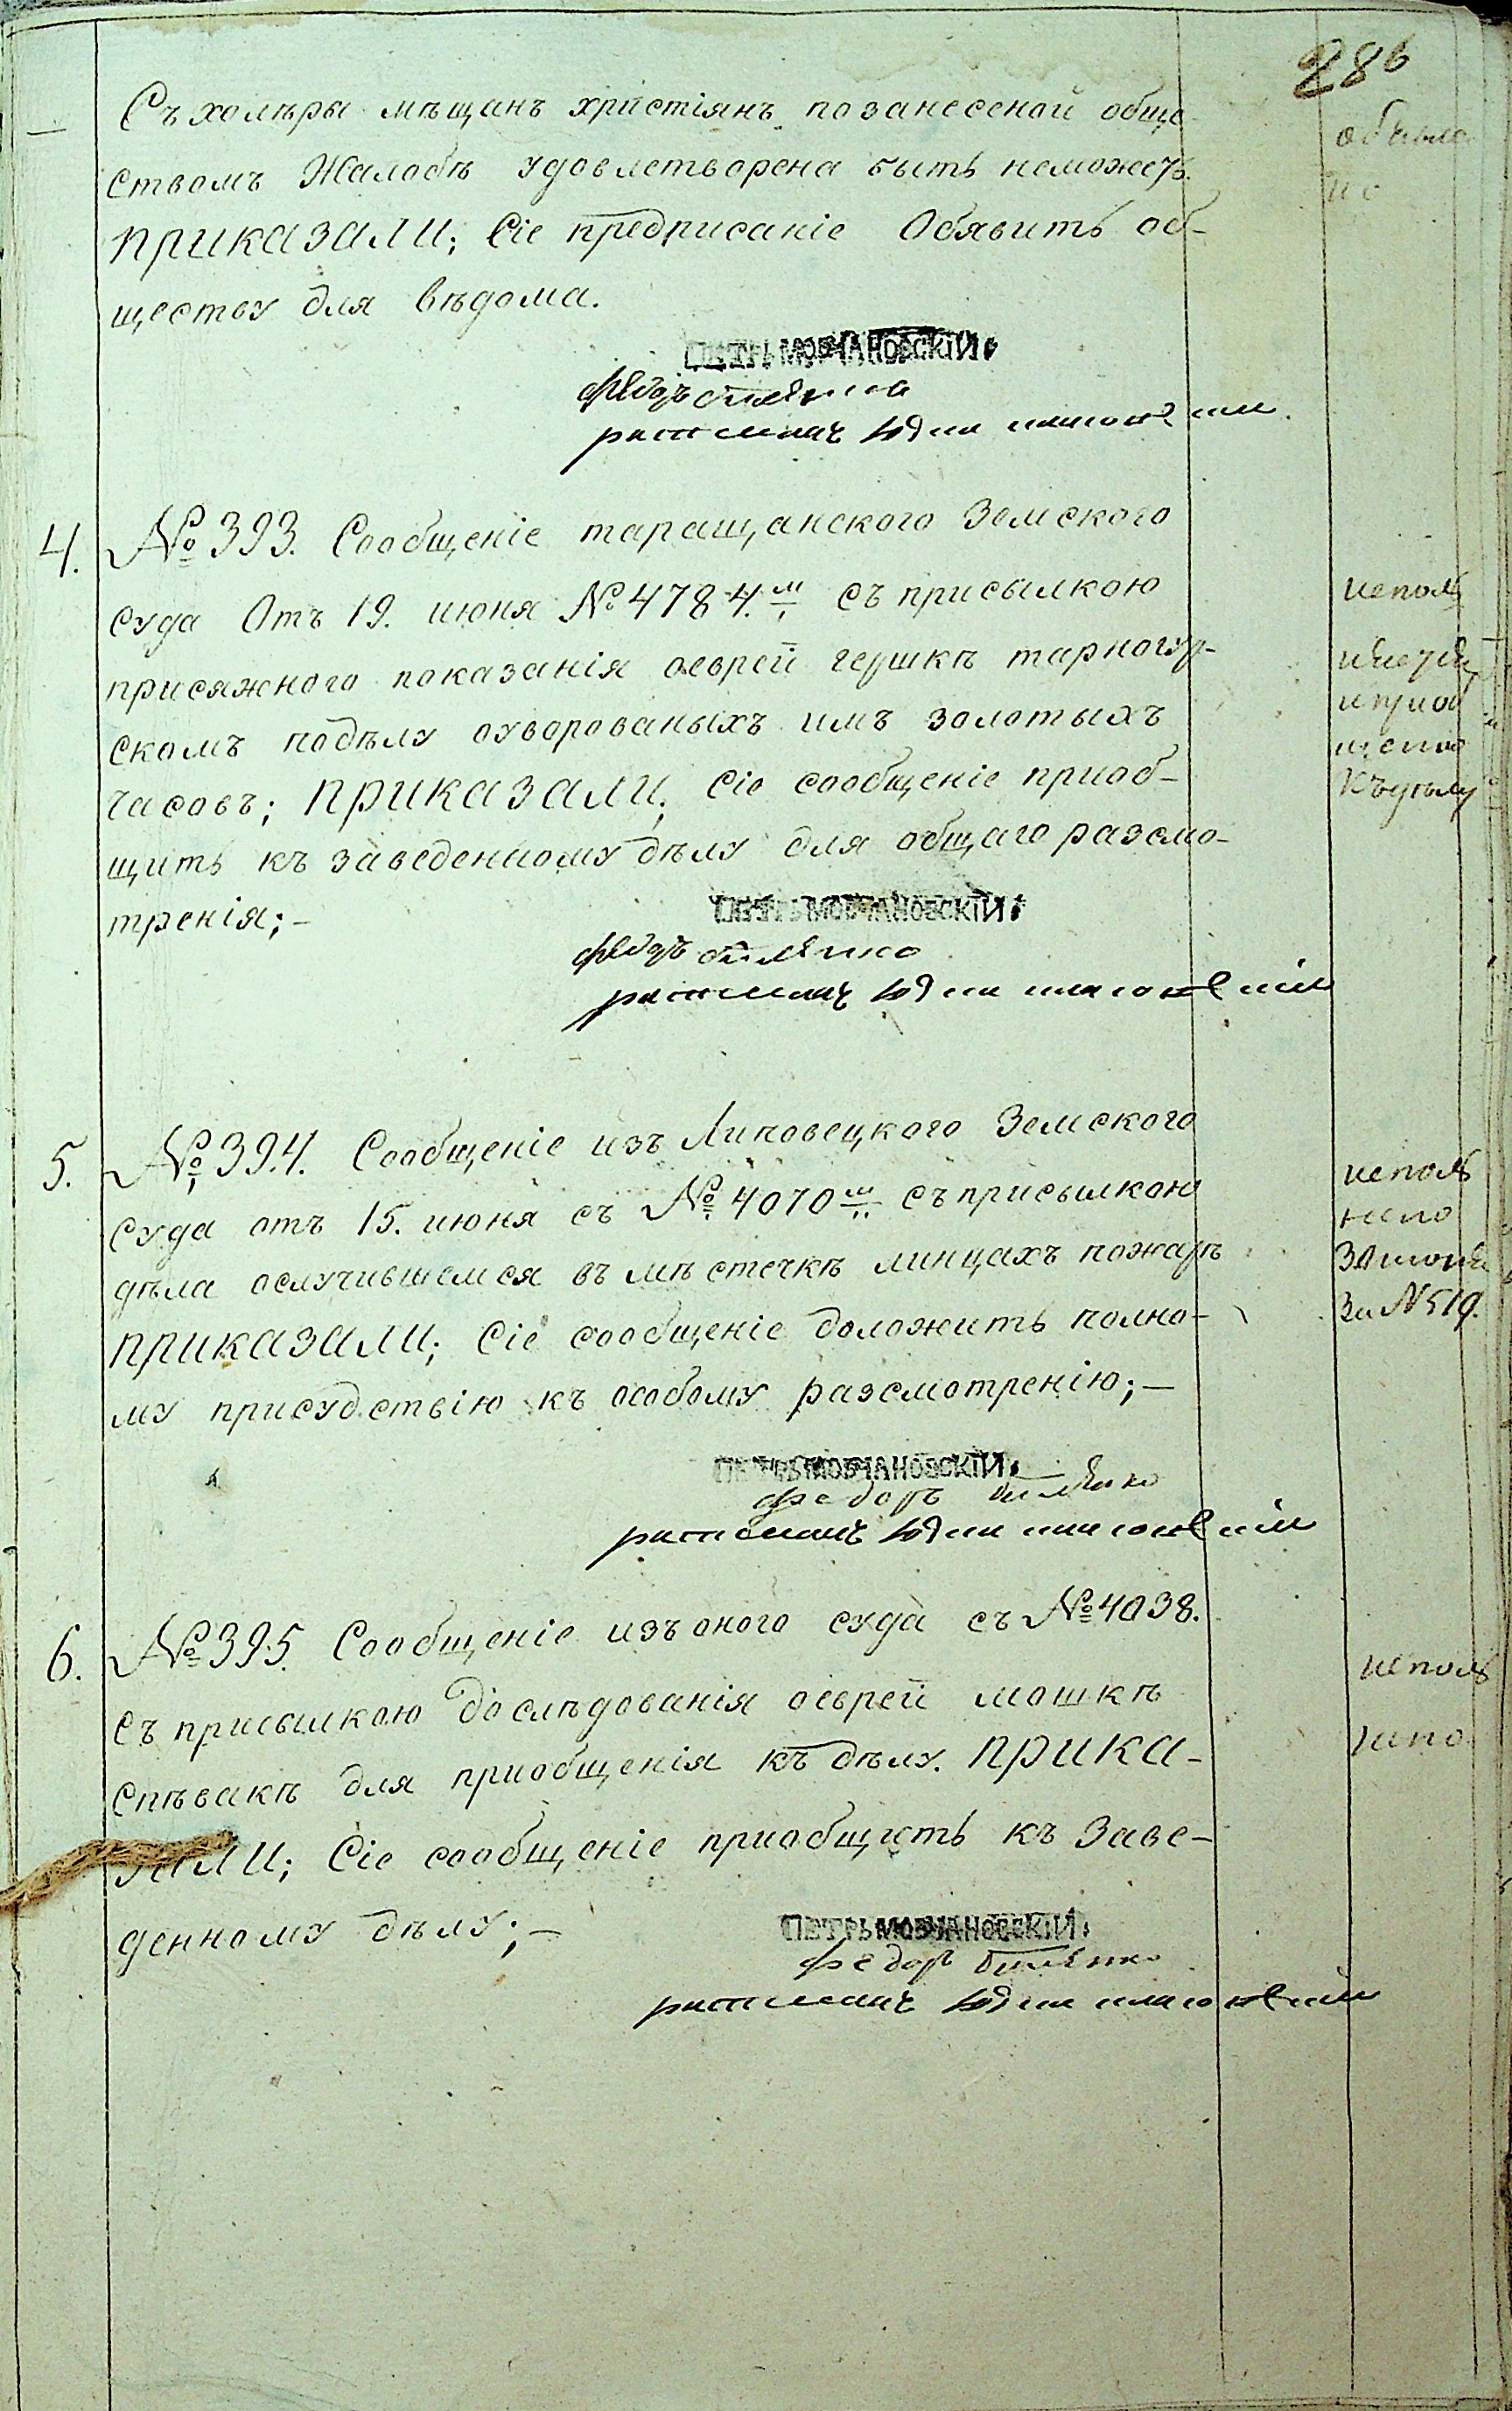 286
Съ холѣры мѣщанъ христіянъ позанесеной обще
ствомъ Жалобѣ удовлетворена быть неможетъ.
приказали; Сіе предписаніе Обявить об-
ществу для вѣдома.
ПЕТРЪ МОВЧАНОВСКІЙ
4. № 393. Сообщеніе таращанского Земского
суда Отъ 19. июня № 4784.м съ присылкою
присяжного показанія оеврей гершкѣ тарногур-
скомъ подѣлу оуворованыхъ имъ золотыхъ
часовъ; приказали; Сіе сообщеніе приоб-
щить къ заведенному дѣлу для общаго разсмо-
тренія;-
къдѣлу
ПЕТРЪ МОВЧАНОВСКІЙ
5. № 394. Сообщеніе изъ Липовецкого Земского
суда отъ 15. июня съ № 4070м съ присылкою
дѣла ослучившемся въ мѣстечкѣ линцахъ пожарѣ
приказали; Сіе сообщеніе доложить полно-
му присудствію къ особому разсмотренію;-
за № 519.
ПЕТРЪ МОВЧАНОВСКІЙ
Федоръ
6. № 395. Сообщеніе изъ оного суда съ № 4038.
съ присылкою дослѣдованія оеврей мошкѣ
спѣвакѣ для приобщенія къ дѣлу. прика-
зали; Сіе сообщеніе приобщить къ Заве-
денному дѣлу;-
ПЕТРЪ МОВЧАНОВСКІЙ
Федоръ